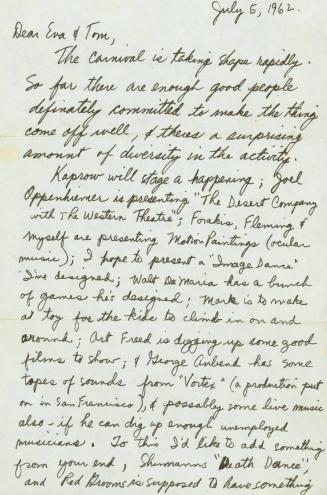 July 5, 1962.
Dear Eva & Tom,
The carnival is taking shape rapidly.
So far there are enough good people
definately committed to make the thing
come off well, & theres a surprising
amount of diversity in the activity.
Kaprow will stage a happening; Joel
Oppenheimer is presenting "The Desert Company
with The Western Theatre"; Forakis, Fleming &
myself are presenting Motion Paintings (ocular
music); I hope to present a "Image Dance"
I've designed; Walt De Maria has a bunch
of games he's designed; Mark is to make
a toy for the kids to climb in on and
around; Art Freed is digging up some good
films to show; & George has some
tapes of sounds from "Vortex" (a production put
on in San Francisco), & possably some live music
also - if he can dig up enough unemployed
musicians. To this I'd like to add something
from your end, Shumann's "Death Dance",
and Red Grooms is supposed to have something